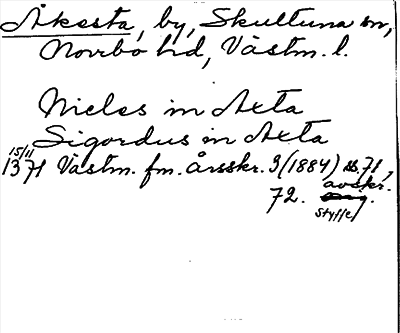 Åkesta, by, Skultuna sn,
Norrbo hd, Västm. l.
Nicles in Axta
Sigordus in Axta
15/11
1371 Västm. fm. årsskr. 3 (1884) ss. 71,
72. avskr.
Styffe